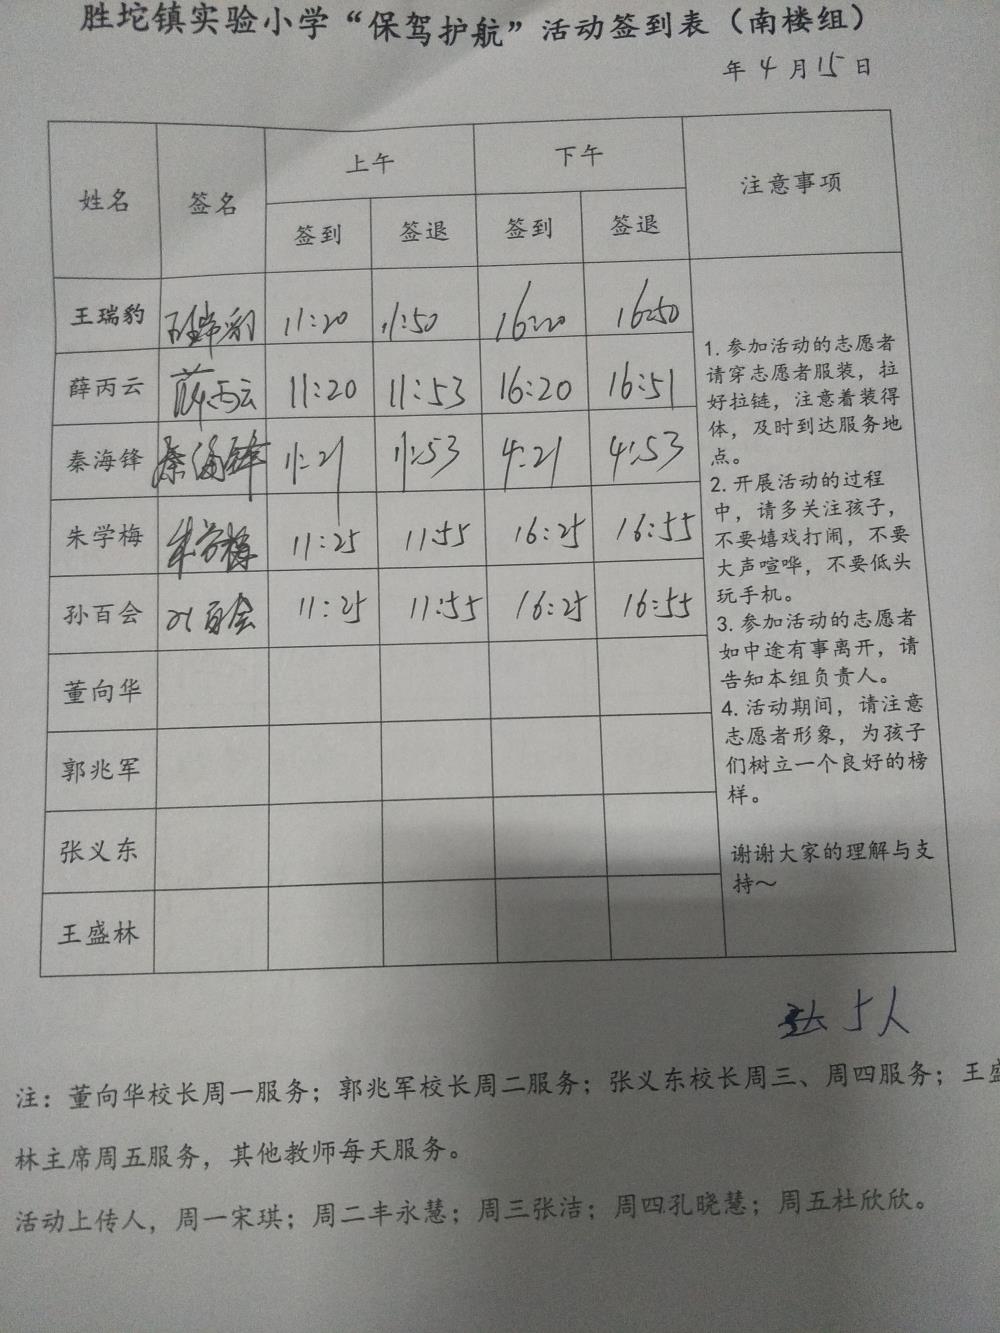 胜坨镇实验小学“保驾护航”活动签到表（南楼组）
年 4 月 15 日
姓名 签名 上午 下午 注意事项
签到 签退 签到 签退
王瑞豹 王瑞豹 11:20 11:50 16:20 16:50
薛丙云 薛丙云 11:20 11:53 16:20 16:51
秦海锋 秦海锋 11:21 11:53 4:21 4:53
朱学梅 朱学梅 11:25 11:55 16:25 16:55
孙百会 孙百会 11:25 11:55 16:25 16:55
董向华
郭兆军
张义东
王盛林
1. 参加活动的志愿者
请穿志愿者服装，拉
好拉链，注意着装得
体，及时到达服务地
点。
2. 开展活动的过程
中，请多关注孩子，
不要嬉戏打闹，不要
大声喧哗，不要低头
玩手机。
3. 参加活动的志愿者
如中途有事离开，请
告知本组负责人。
4. 活动期间，请注意
志愿者形象，为孩子
们树立一个良好的榜
样。
谢谢大家的理解与支
持～
5人
注：董向华校长周一服务；郭兆军校长周二服务；张义东校长周三、周四服务；王盛
林主席周五服务，其他教师每天服务。
活动上传人，周一宋琪；周二丰永慧；周三张洁；周四孔晓慧；周五杜欣欣。